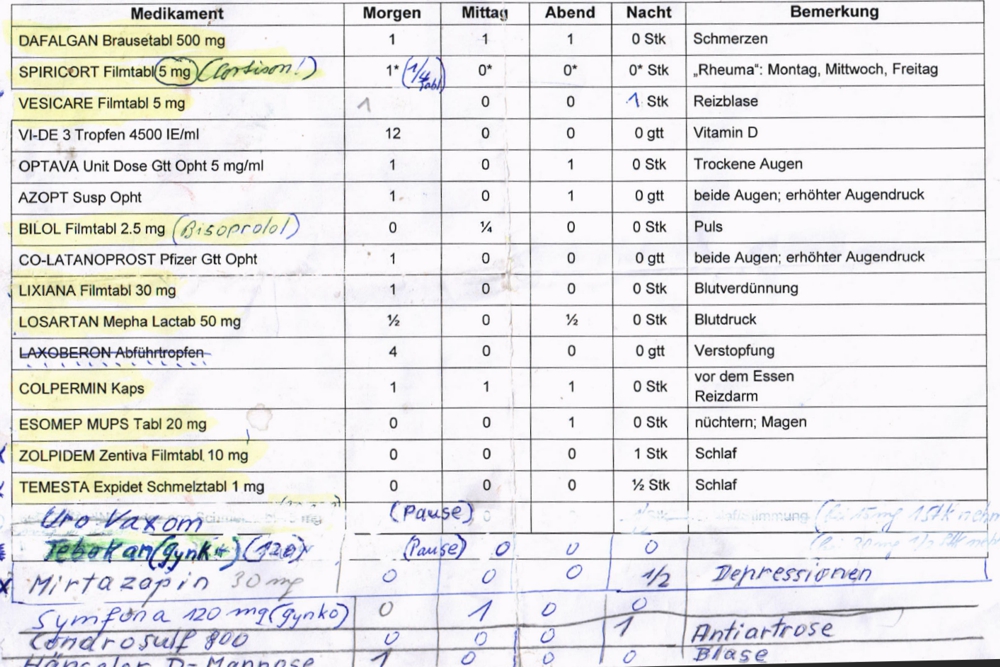 Medikament Morgen Mittag Abend Nacht Bemerkung
DAFALGAN Brausetabl 500 mg 1 1 1 0 Stk Schmerzen
SPIRICORT Filmtabl 5 mg (Cortison!) 1* (1/4 Tabl) 0* 0* 0* Stk „Rheuma“: Montag, Mittwoch, Freitag
VESICARE Filmtabl 5 mg 1 0 0 1 Stk Reizblase
VI-DE 3 Tropfen 4500 IE/ml 12 0 0 0 gtt Vitamin D
OPTAVA Unit Dose Gtt Opht 5 mg/ml 1 0 1 0 Stk Trockene Augen
AZOPT Susp Opht 1 0 1 0 gtt beide Augen; erhöhter Augendruck
BILOL Filmtabl 2.5 mg (Bisoprolol) 0 ¼ 0 0 Stk Puls
CO-LATANOPROST Pfizer Gtt Opht 1 0 0 0 gtt beide Augen; erhöhter Augendruck
LIXIANA Filmtabl 30 mg 1 0 0 0 Stk Blutverdünnung
LOSARTAN Mepha Lactab 50 mg ½ 0 ½ 0 Stk Blutdruck
LAXOBERON Abführtropfen 4 0 0 0 gtt Verstopfung
COLPERMIN Kaps 1 1 1 0 Stk vor dem Essen
Reizdarm
ESOMEP MUPS Tabl 20 mg 0 0 1 0 Stk nüchtern; Magen
ZOLPIDEM Zentiva Filmtabl 10 mg 0 0 0 1 Stk Schlaf
TEMESTA Expidet Schmelztabl 1 mg 0 0 0 ½ Stk Schlaf
Uro Vaxom (Pause)
Tebokan (Gynk+) (120) (Pause) 0 0 0
Mirtazapin 30 mg 0 0 0 1/2 Depressionen
Symfona 120 mg (gynko) 0 1 0 0
Condrosulf 800 0 0 0 1 Antiartrose
Hänseler D-Mannose 1 0 0 0 Blase